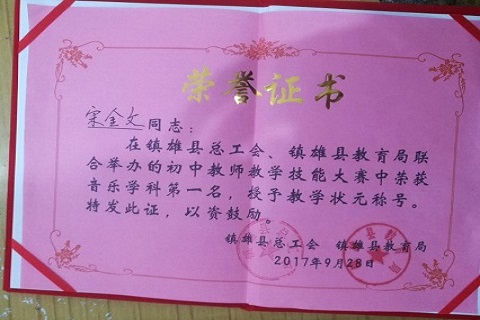 荣誉证书
宋金文同志：
在镇雄县总工会、镇雄县教育局联
合举办的初中教师教学技能大赛中荣获
音乐学科第一名，授予教学状元称号。
特发此证，以资鼓励。
镇雄县总工会 镇雄县教育局
2017年9月28日